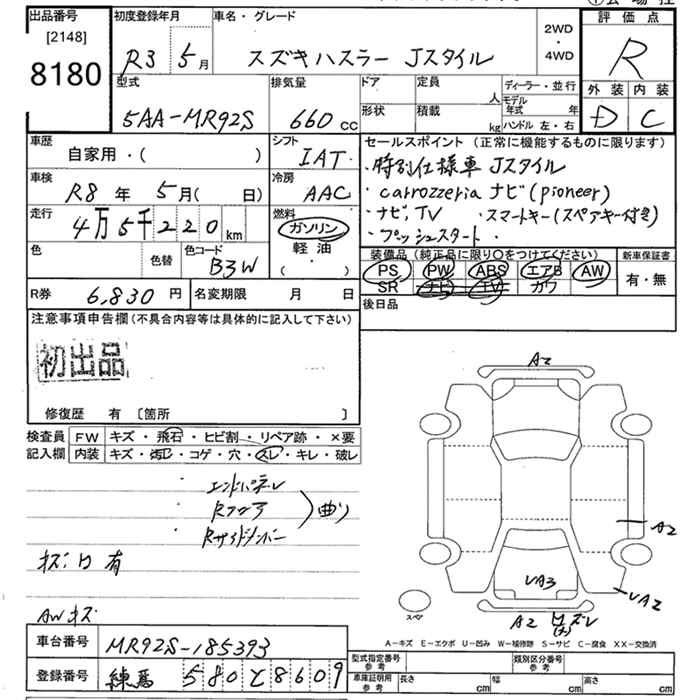 出品番号 初度登録年月 車名・グレード 2WD・4WD 評価点
[2148]
8180
R3 5月 スズキハスラー Jスタイル R
型式 排気量 ドア 定員 人 ディーラー・並行 外装 内装
5AA-MR92S 660cc 形状 積載 kg モデル年式 年 ハンドル 左・右 D C
車歴 自家用・( ) シフト IAT セールスポイント(正常に機能するものに限ります)
・特別仕様車 Jスタイル
車検 R8年 5月( 日) 冷房 AAC ・carrozzeria ナビ(pioneer)
走行 4万5千220km 燃料 ガソリン・軽油・( ) ・ナビ,TV ・スマートキー(スペアキー付き)
・プッシュスタート・
色 色替 色コード B3W 装備品(純正品に限り○をつけてください) 新車保証書
PS PW ABS エアB AW 有・無
SR ナビ TV カワ
R券 6,830円 名変期限 月 日 後日品
注意事項申告欄(不具合内容等は具体的に記入して下さい)
初出品
修復歴 有 [箇所 ]
検査員記入欄 FW キズ・飛石・ヒビ割・リペア跡・×要
内装 キズ・汚レ・コゲ・穴・スレ・キレ・破レ
・エンドパネル
・Rフロア
・Rサイドメンバー
曲り
キズ凹有
AWキズ
A2
A2
UA3
UA2
A2
スペア
A-キズ E-エクボ U-凹み W-補修跡 S-サビ C-腐食 XX-交換済
車台番号 MR92S-185393
登録番号 練馬 580 と 8609
型式指定番号 参考 類別区分番号 参考
車庫証明用 参考 長さ cm 幅 cm 高さ cm